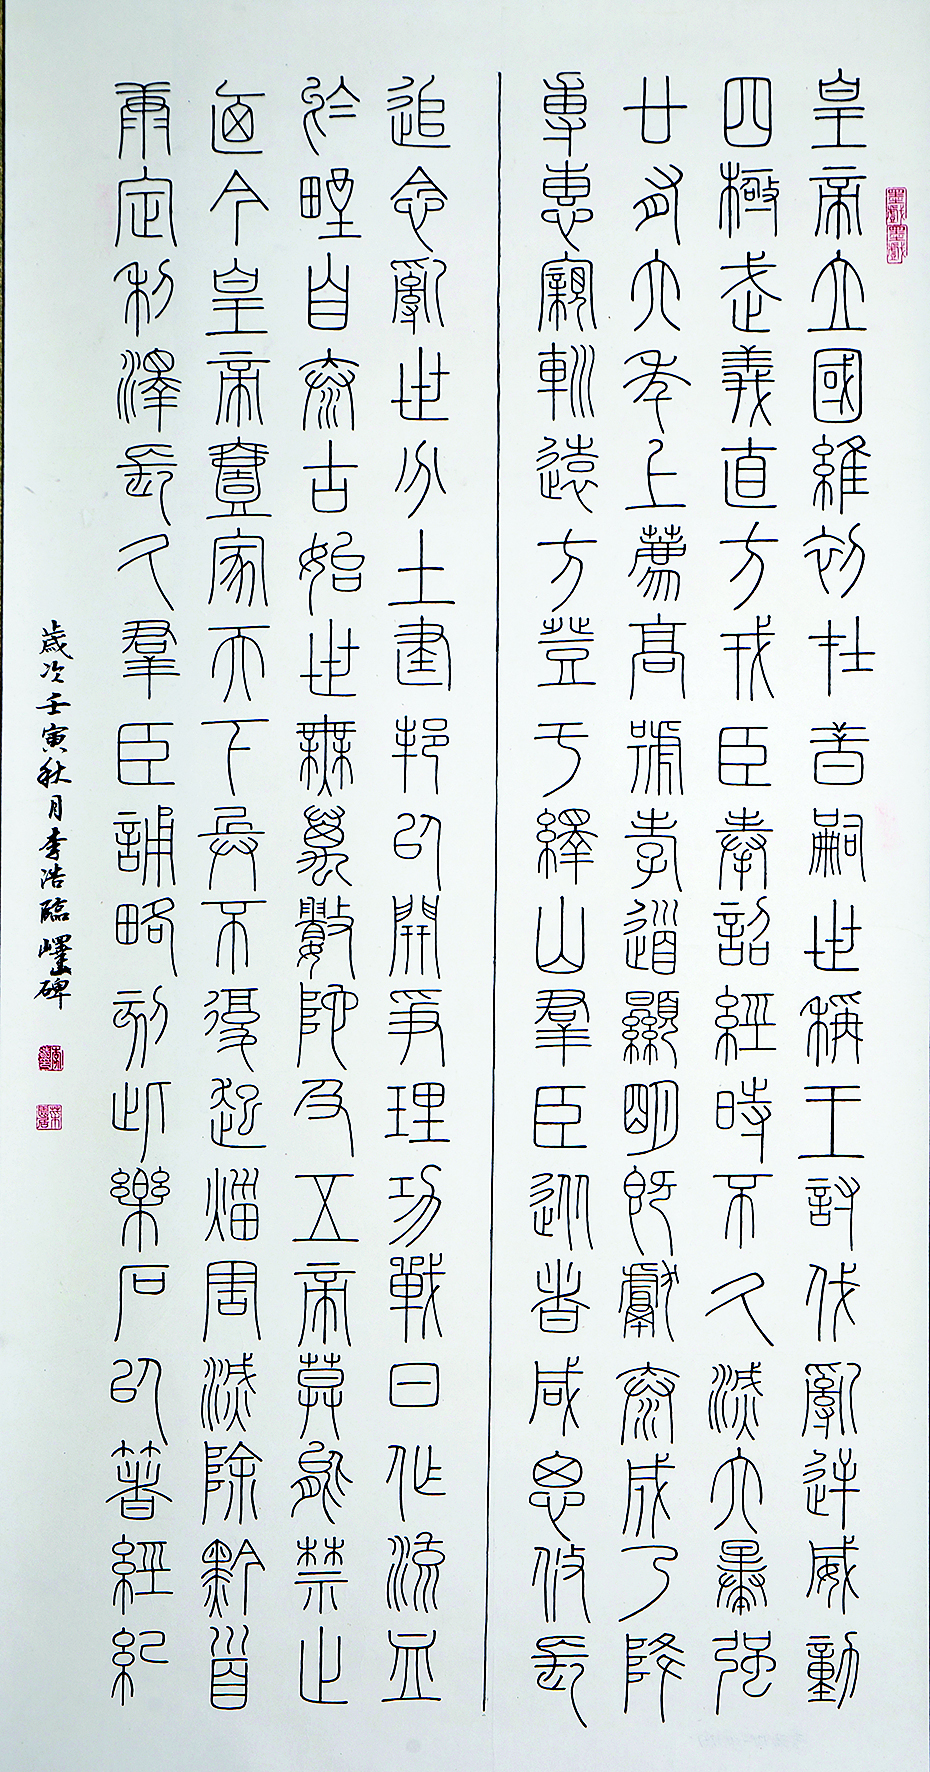 皇帝立國維初在昔嗣世稱王討伐亂逆威動
四極武義直方戎臣奉詔經時不久滅六暴強
廿有六年上薦高號孝道顯明既獻泰成乃降
專惠親巡遠方登于繹山羣臣從者咸思攸長
追念亂世分土建邦以開爭理功戰日作流血
於野自泰古始世無萬數陀及五帝莫能禁止
廼今皇帝壹家天下兵不復起災害滅除黔首
康定利澤長久羣臣誦略刻此樂石以著經紀
歲次壬寅秋月李浩臨嶧山碑